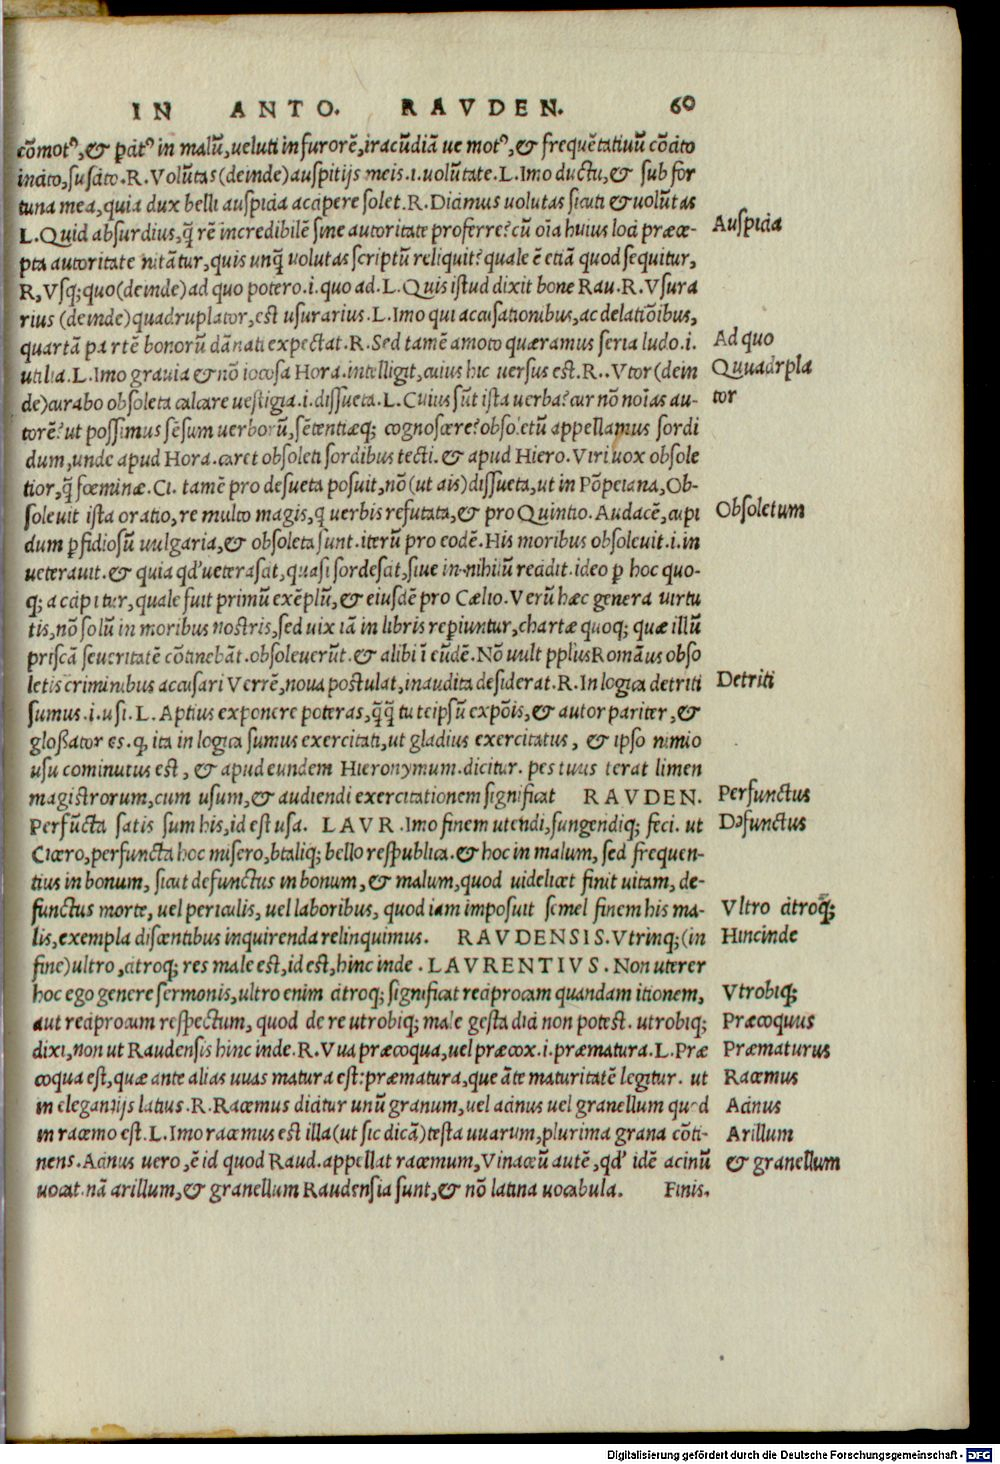 IN ANTO. RAVDEN. 60
cōmotꝰ, & ꝑcitꝰ in malū, ueluti in furorē, iracūdiā ue motꝰ, & frequētatiuū cōcito
incito, suscito. R. Volūtas (deinde) auspitijs meis .i. uolūtate. L. Imo ductu, & sub for
tuna mea, quia dux belli auspicia accipere solet. R. Dicimus uolutas sicuti & uolūtas
L. Quid absurdius, q̄ rē incredibilē sine autoritate proferre? cū oīa huius loci præce-
Auspicia
pta autoritate nitātur, quis unq̄ uolutas scriptū reliquit? quale ē etiā quod sequitur,
R, Vsq; quo (deinde) ad quo potero .i. quo ad. L. Quis istud dixit bone Rau. R. Vsura
rius (deinde) quadruplator, est usurarius. L. Imo qui accusationibus, ac delatiōibus,
quartā partē bonorū dānati expectat. R. Sed tamē amoto quæramus seria ludo .i.
Ad quo
utilia. L. Imo grauia & nō iocosa Hora. intelligit, cuius hic uersus est. R.. Vtor (dein
Quuadrpla
de) curabo obsoleta calcare uestigia .i. dissueta. L. Cuius sūt ista uerba? cur nō noīas au-
tor
torē? ut possimus sēsum uerborū, sētentiæq; cognoscere? obsoletū appellamus sordi
dum, unde apud Hora. caret obsoleti sordibus tecti. & apud Hiero. Viri uox obsole
tior, q̄ fœminæ. Ci. tamē pro desueta posuit, nō (ut ais) dissueta, ut in Pōpeiana, Ob-
soleuit ista oratio, re multo magis, q̄ uerbis refutata, & pro Quintio. Audacē, cupi
Obsoletum
dum ꝑfidiosū uulgaria, & obsoleta sunt. iterū pro eodē. His moribus obsoleuit .i. in
ueterauit. & quia qd' ueterascit, quasi sordescit, siue in nihilū recidit. ideo ꝑ hoc quo-
q; accipitur, quale fuit primū exēplū, & eiusdē pro Cælio. Verū hæc genera uirtu
tis, nō solū in moribus nostris, sed uix iā in libris reperiuntur, chartæ quoq; quæ illū
priscā seueritatē cōtinebāt. obsoleuerūt. & alibi ī eūdē. Nō uult pplius Romāus obso
letis criminibus accusari Verrē, noua postulat, inaudita desiderat. R. In logica detriti
Detriti
sumus .i. usi. L. Aptius exponere poteras, q̄q̄ tu teipsū expōis, & autor pariter, &
gloßator es. q̄ ita in logica sumus exercitati, ut gladius exercitatus, & ipso nimio
usu cominutus est, & apud eundem Hieronymum. dicitur. pes tuus terat limen
magistrorum, cum usum, & audiendi exercitationem significat RAVDEN.
Perfunctus
Perfūcta satis sum his, id est usa. LAVR. Imo finem utendi, fungendiq; feci. ut
Defunctus
Cicero, perfuncta hoc misero, btaliq; bello respublica. & hoc in malum, sed frequen-
tius in bonum, sicut defunctus in bonum, & malum, quod uidelicet finit uitam, de-
functus morte, uel periculis, uel laboribus, quod iam imposuit semel finem his ma-
Vltro citroq̄;
lis, exempla discentibus inquirenda relinquimus. RAVDENSIS. Vtrinq; (in
Hincinde
fine) ultro, citroq; res male est, id est, hinc inde. LAVRENTIVS. Non uterer
hoc ego genere sermonis, ultro enim citroq; significat reciprocam quandam itionem,
Vtrobiq;
aut reciprocum respectum, quod de re utrobiq; male gesta dici non potest. utrobiq;
Præcoquus
dixi, non ut Raudensis hinc inde. R. Vua præcoqua, uel præcox .i. præmatura. L. Præ
Præmaturus
coqua est, quæ ante alias uuas matura est: præmatura, que āte maturitatē legitur. ut
Racemus
in elegantijs latius. R. Racemus dicitur unū granum, uel acinus uel granellum quod
Acinus
in racemo est. L. Imo racemus est illa (ut sic dicā) testa uuarum, plurima grana cōti-
Arillum
nens. Acinus uero, ē id quod Raud. appellat racemum, Vinaceū autē, qd' idē acinū
& granellum
uocat. nā arillum, & granellum Raudensia sunt, & nō latina uocabula. Finis.
Digitalisierung gefördert durch die Deutsche Forschungsgemeinschaft - DFG